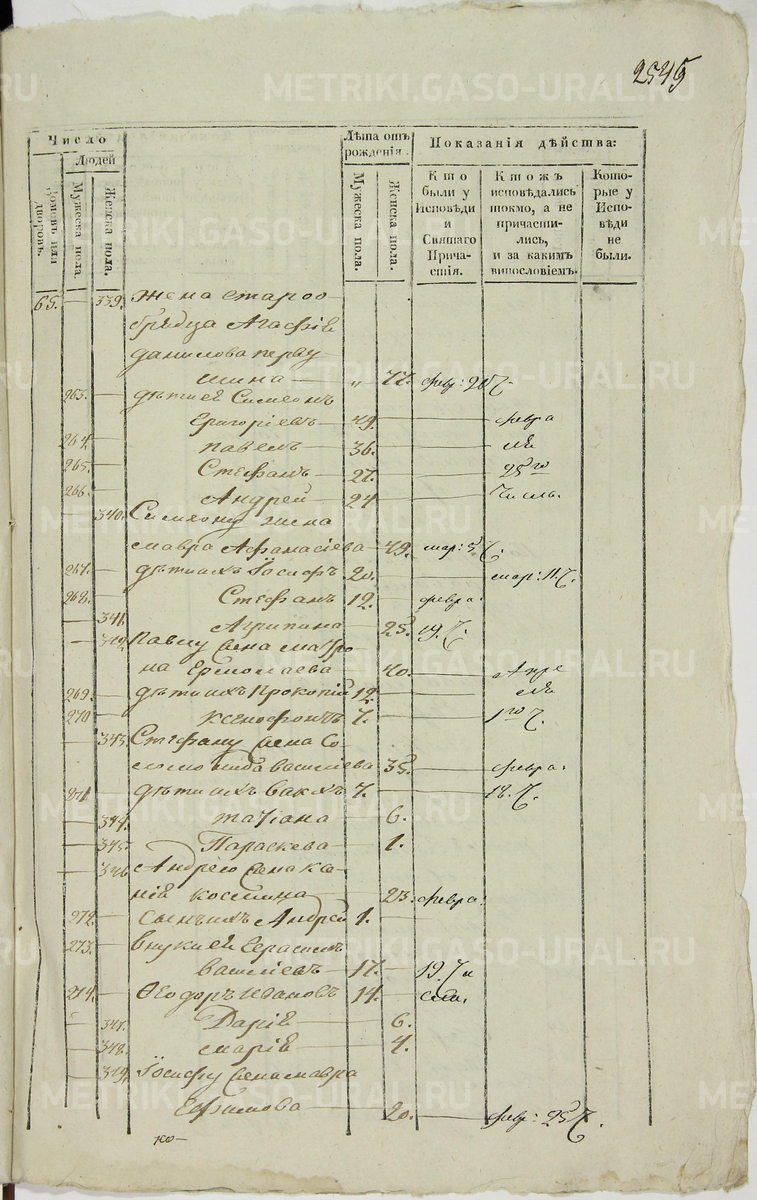 2545
METRIKI.GASO-URAL.RU
Число
Людей
Домовъ или дворовъ.
Мужеска пола.
Женска пола.
Лѣта отъ рожденія.
Мужеска пола.
Женска пола.
Показанія дѣйства:
Кто были у Исповѣди и Святаго Причастія.
Ктожъ исповѣдались токмо, а не причастились, и за какимъ винословіемъ.
Которые у Исповѣди не были.
65. — 339. жена старо о
брядца Агафія
данилова перву
шина — „ 77. февр: 20 Ч.
263. дѣти ей Симеонъ
Григоріевъ — 49. февра
264. павелъ — 36. ля
265. Стефанъ — 27. 25го
266. Андрей — 24 числ.
340. Симеону жена
мавра Афанасіева — 49. мар: 5. Ч.
267. дѣти ихъ Іосифъ 20. мар: 11. Ч.
268. Стефанъ 12. февра:
341. Агрипина — 25. 19. Ч.
342. Павлу жена матро
на Ермолаева 40. Апре
269. дѣти ихъ Прокопій 12. ля
270 ксенофонтъ 7. 1го Ч.
343. Стефану жена Со
ломонида василіева 35. февра:
271 дѣти ихъ вакхъ 7. 18. Ч.
344. татіана 6.
345. Параскева — 1.
346 Андрею жена Ксе
нія космина — 23. февра:
272. сынъ ихъ Андрей 1.
273. внуки ей Герасимъ
василіевъ — 17. 19. Ч
274. Ѳеодоръ ивановъ 14.
347. Дарія — 6.
348. марія — 4.
349. Іосифу жена мавра
Ефимова — 20. февр: 25 Ч.